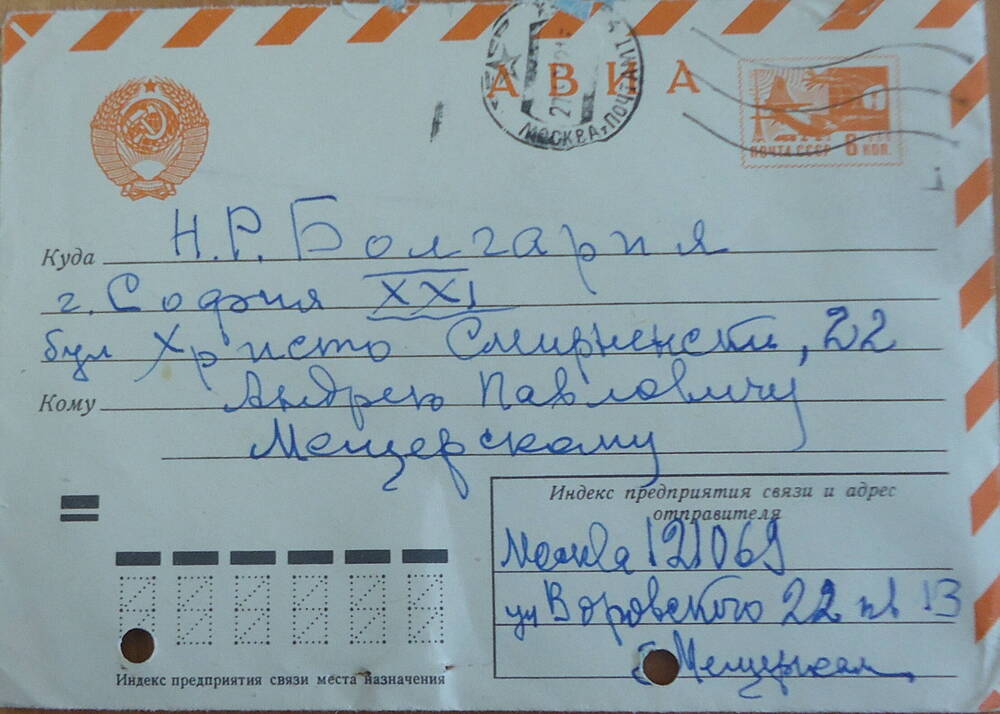 АВИА
МОСКВА, ПОЧТАМТ
ПОЧТА СССР 6 КОП.
Куда Н.Р. Болгария
г. София XXI
бул Христо Смирненски, 22
Кому Андрею Павловичу
Мещерскому
Индекс предприятия связи и адрес
отправителя
Москва 121069
ул Воровского 22 кв 13
Мещерская
Индекс предприятия связи места назначения